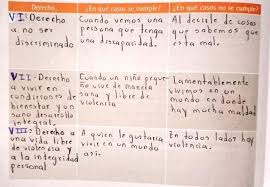 Derecho
¿En qué casos se cumple?
¿En qué casos no se cumple?
VI: Derecho
a no ser
discriminado
Cuando vemos una
persona que tenga
una discapacidad.
Al decirle de cosas
que sabemos que
esta mal.
VII: Derecho
a vivir en
condiciones de
bienestar y un
sano desarrollo
integral.
Cuando un niño peque-
ño vive de manera
sana y libre de
violencia
Lamentablemente
vivimos en un
mundo en donde
hay mucha maldad
VIII: Derecho a
una vida libre
de violencia y
a la integridad
personal
A quien le gustaria
vivir en un mundo
asi.
En todos lados hay
violencia.